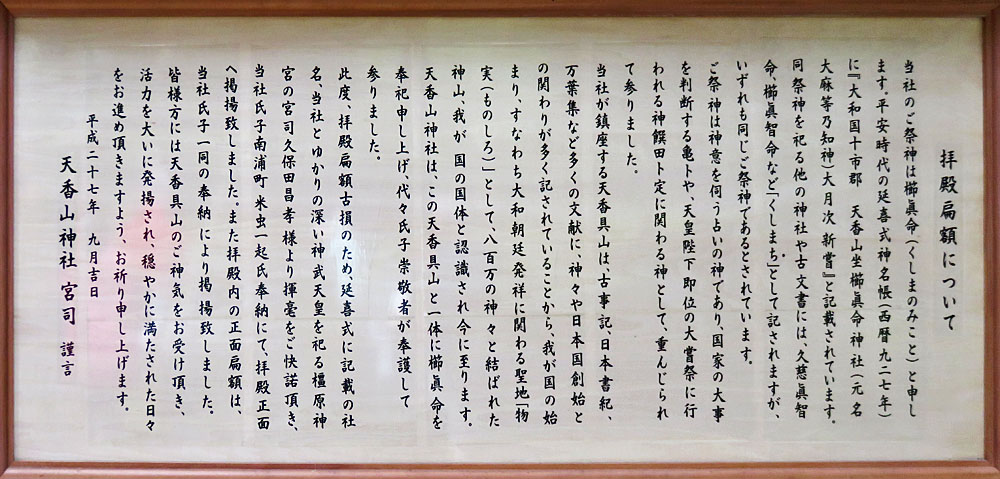 拝殿扁額について
当社のご祭神は櫛眞命(くしまのみこと)と申し
ます。平安時代の延喜式神名帳(西暦九二七年)
に『大和国十市郡 天香山坐櫛眞命神社(元名
大麻等乃知神)大月次 新嘗』と記載されています。
同祭神を祀る他の神社や古文書には、久慈眞智
命、櫛眞智命など「くしまち」として記されますが、
いずれも同じご祭神であるとされています。
ご祭神は神意を伺う占いの神であり、国家の大事
を判断する亀卜や、天皇陛下即位の大嘗祭に行
われる神饌田卜定に関わる神として、重んじられ
て参りました。
当社が鎮座する天香具山は、古事記、日本書紀、
万葉集など多くの文献に、神々や日本国創始と
の関わりが多く記されていることから、我が国の始
まり、すなわち大和朝廷発祥に関わる聖地「物
実(ものしろ)」として、八百万の神々と結ばれた
神山、我が国の国体と認識され今に至ります。
天香山神社は、この天香具山と一体に櫛眞命を
奉祀申し上げ、代々氏子崇敬者が奉護して
参りました。
此度、拝殿扁額古損のため、延喜式に記載の社
名、当社とゆかりの深い神武天皇を祀る橿原神
宮の宮司久保田昌孝様より揮毫をご快諾頂き、
当社氏子南浦町 米虫一起氏奉納にて、拝殿正面
へ掲揚致しました。また拝殿内の正面扁額は、
当社氏子一同の奉納により掲揚致しました。
皆様方には天香具山のご神気をお受け頂き、
活力を大いに発揚され、穏やかに満たされた日々
をお進め頂きますよう、お祈り申し上げます。
平成二十七年 九月吉日
天香山神社 宮司 謹言